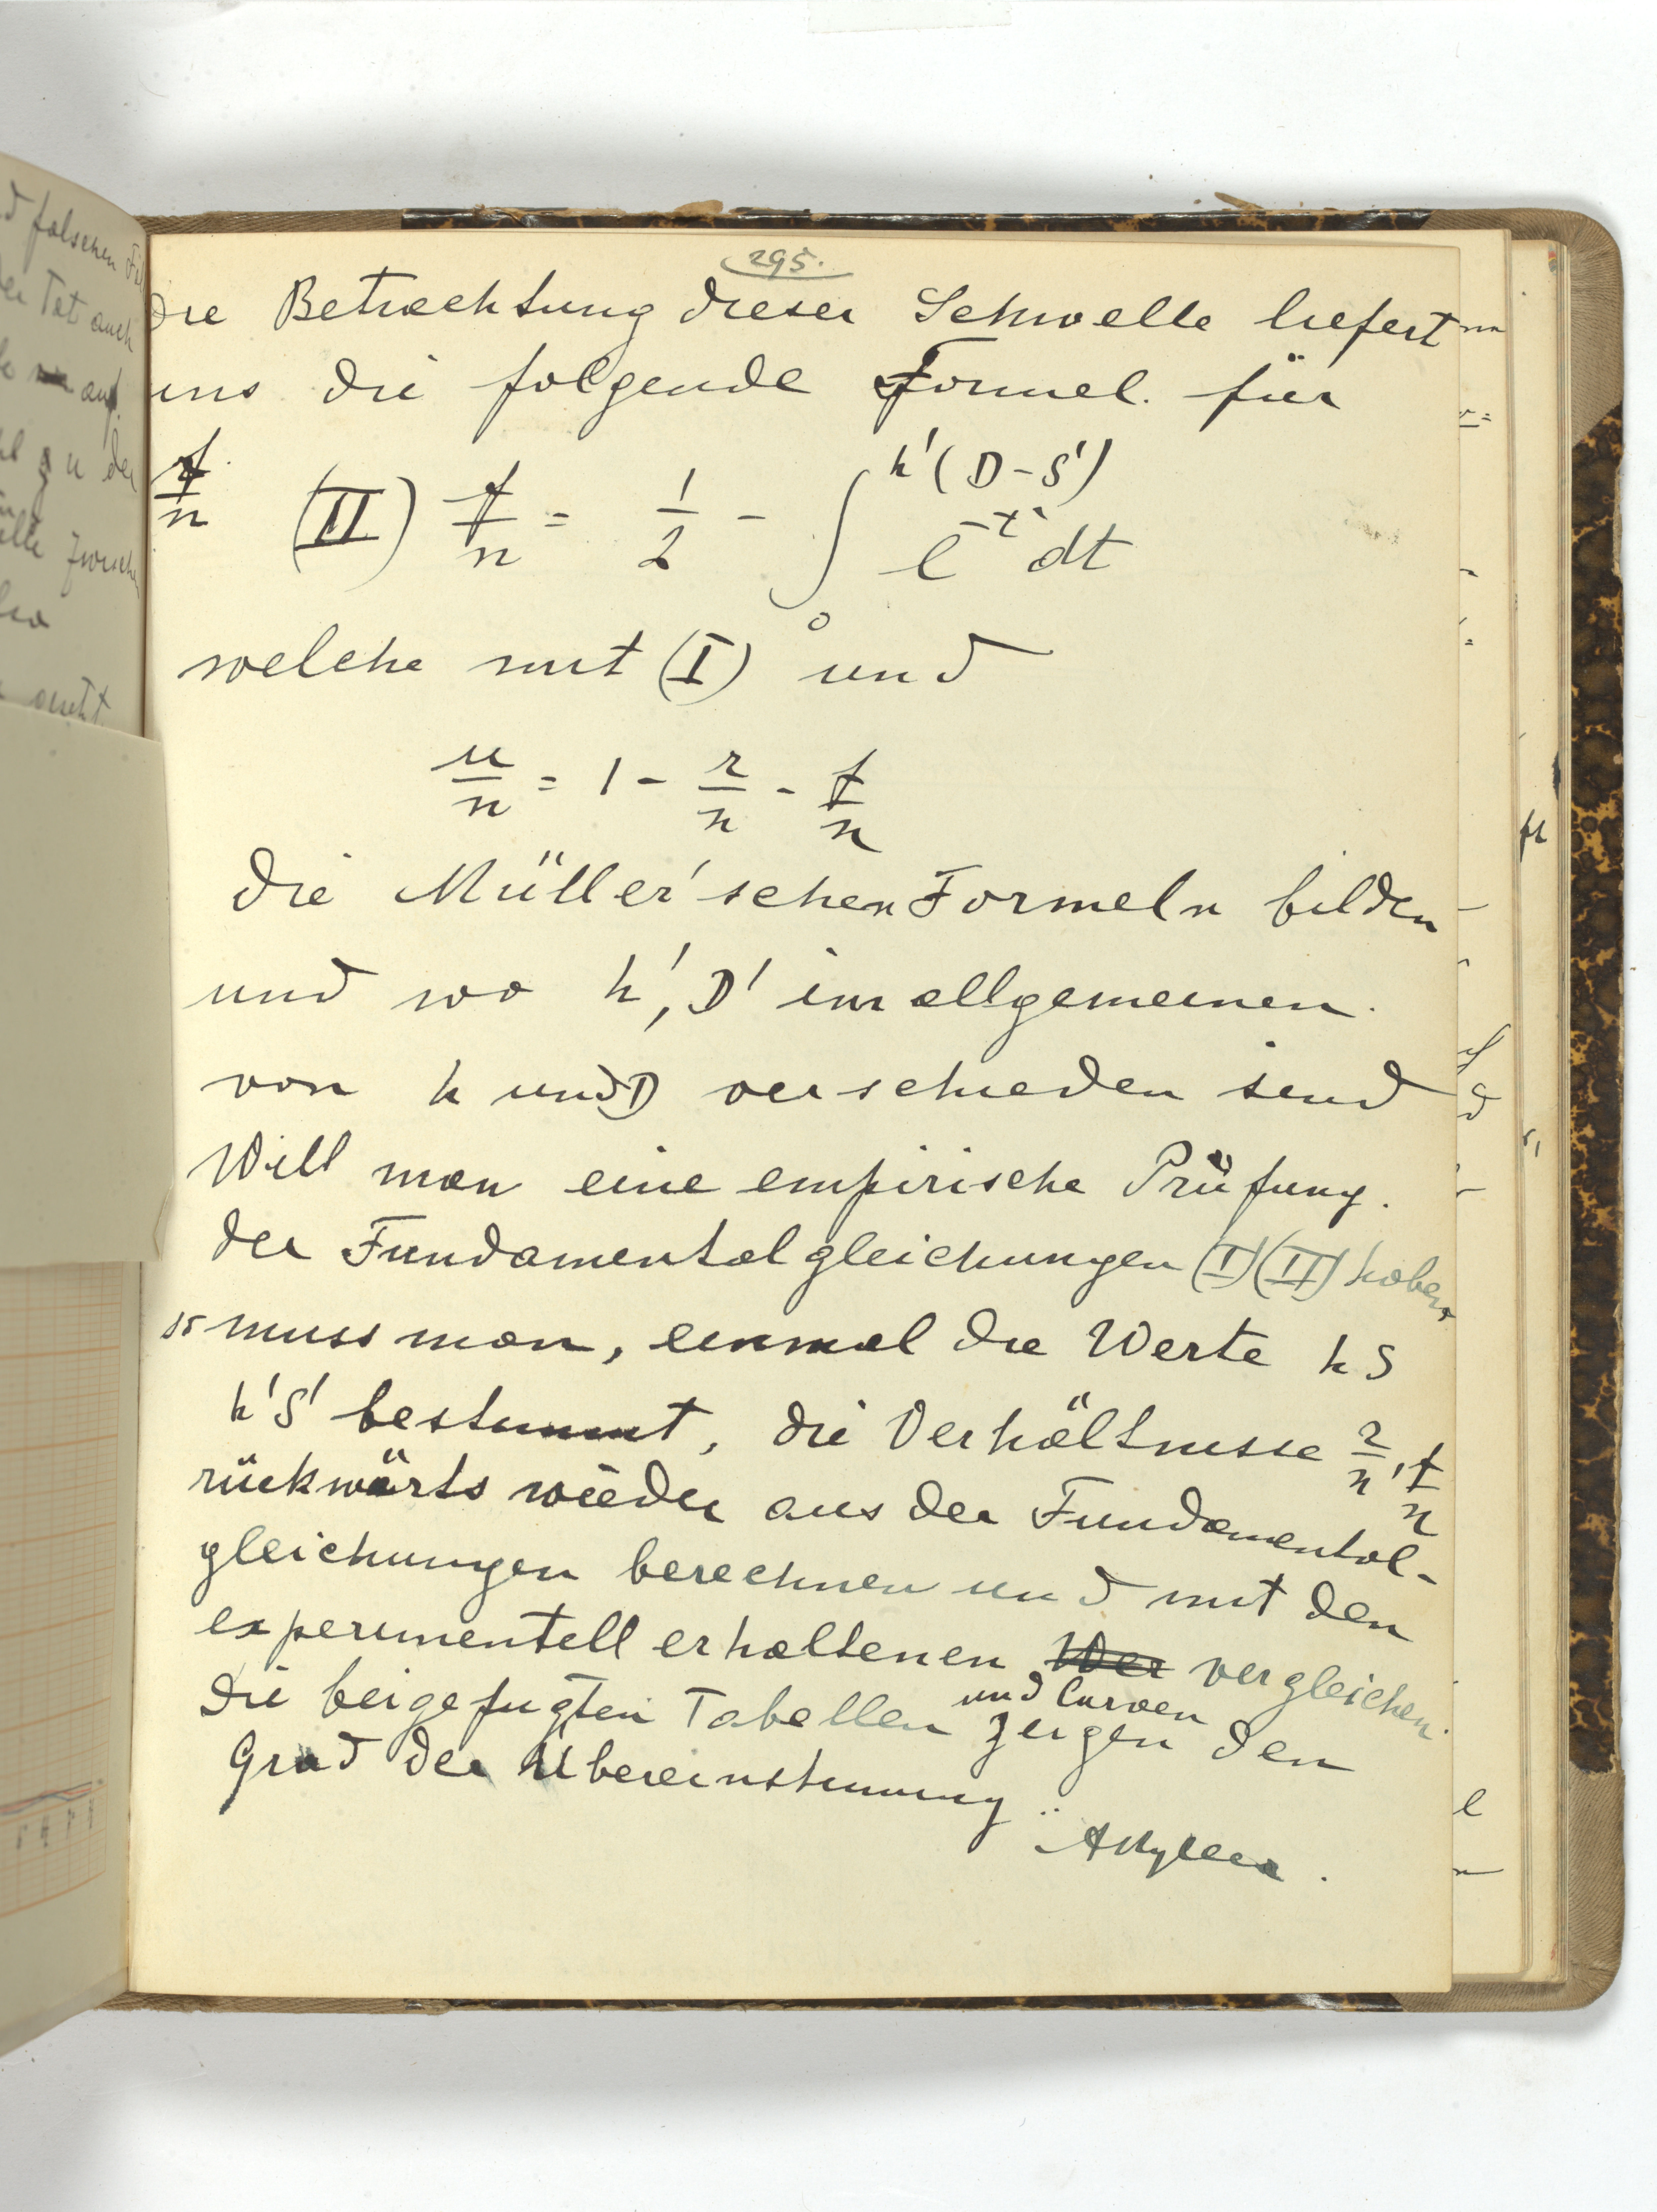 295.
Die Betrachtung dieser Schwelle liefert
uns die folgende Formel. für
f/n (II) f/n = 1/2 - ∫₀^{h'(D-S')} e^{-t²} dt
welche mit (I) und
u/n = 1 - r/n - f/n
die Müller'schen Formeln bilden
und wo h', D' im allgemeinen.
von h und D verschieden sind
Will man eine empirische Prüfung.
der Fundamentalgleichungen (I) (II) haben
so muss man, einmal die Werte h S
h' S' bestimmt, die Verhältnisse r/n, f/n
rückwärts wieder aus der Fundamental-
gleichungen berechnen und mit den
experimentell erhaltenen vergleichen.
und Curven
Die beigefugten Tabellen zeigen den
Grad der Übereinstimmung
d falschen
der Tat auch
auf.
zu der